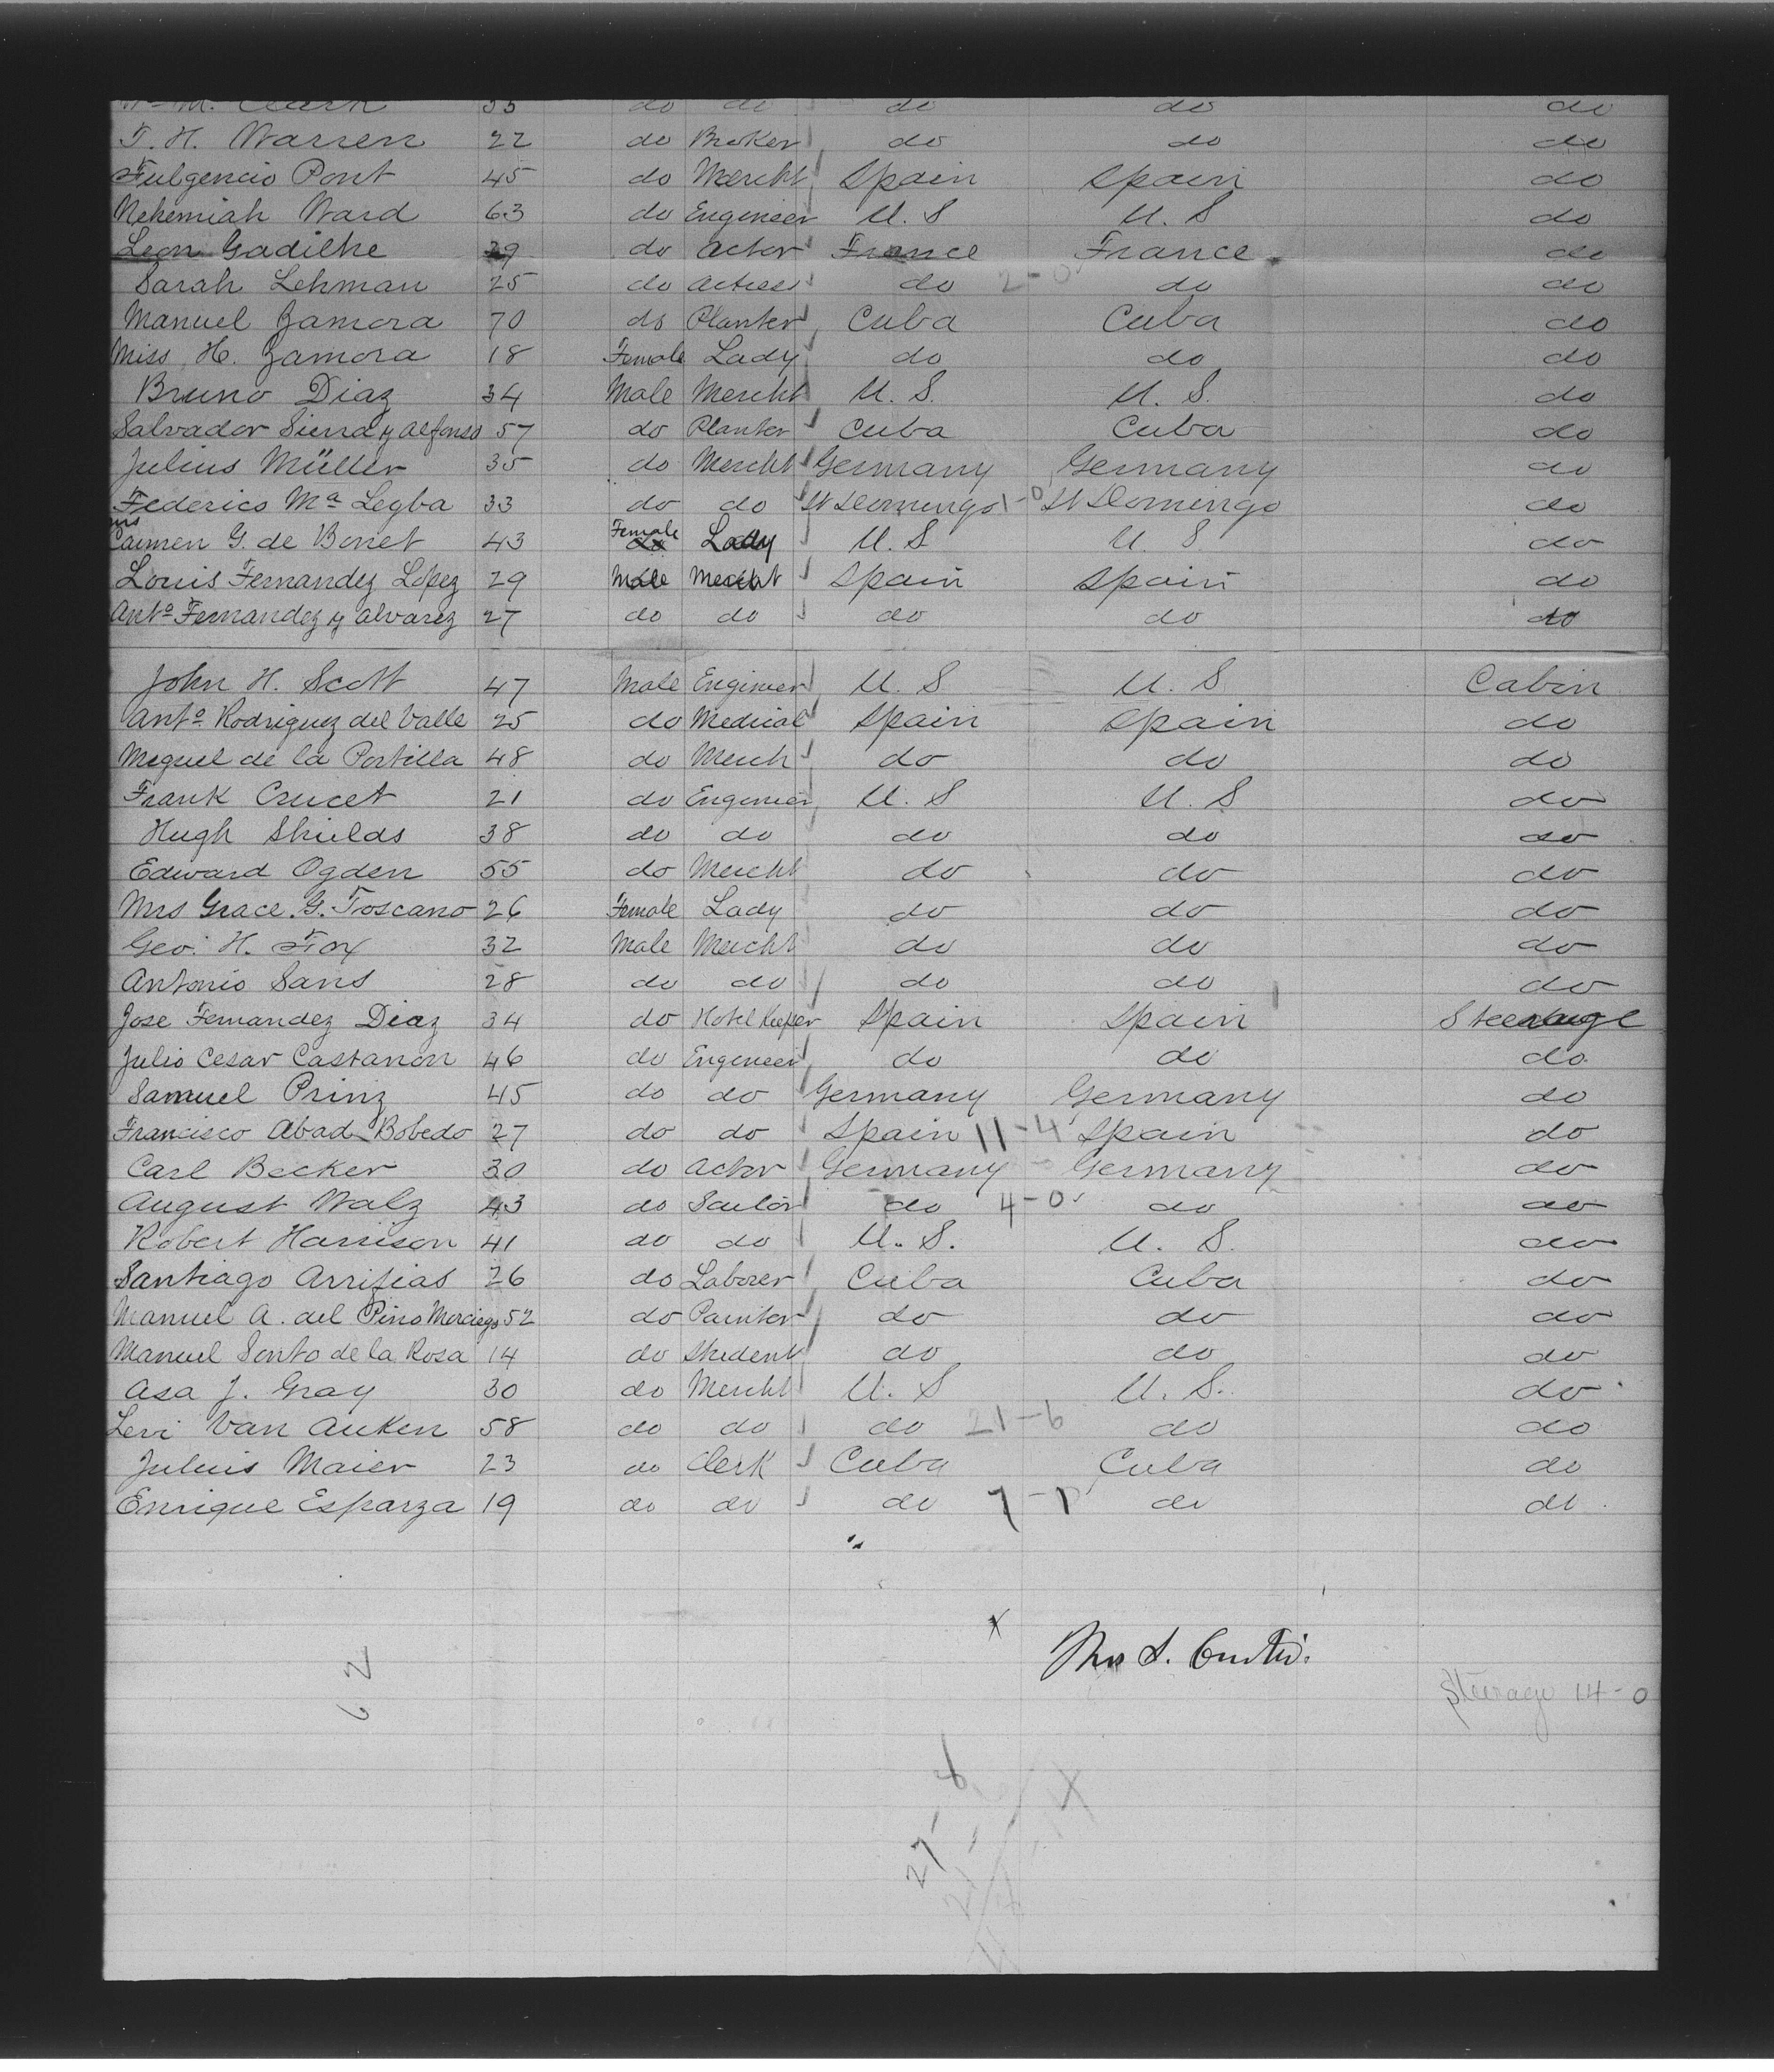 Wm M. Clark 33 do do do do do
T. H. Warren 22 do Broker do do do
Fulgencio Pont 45 do Mercht Spain Spain do
Nehemiah Ward 63 do Engineer U. S U. S do
Leon Gadilhe 39 do Actor France France do
Sarah Lehman 25 do Actress do 2-0 do do
Manuel Zamora 70 do Planter Cuba Cuba do
Miss H. Zamora 18 Female Lady do do do
Bruno Diaz 34 Male Mercht U. S. U. S. do
Salvador Sierra y Alfonso 57 do Planter Cuba Cuba do
Julius Müller 35 do Mercht Germany Germany do
Federico Mª Legba 33 do do St Domingo 1-0 St Domingo do
Mrs Carmen G. de Bonet 43 Female Lady U. S U. S do
Louis Fernandez Lopez 29 Male Mercht Spain Spain do
Antº Fernandez y Alvarez 27 do do do do do
John H. Scott 47 Male Engineer U. S U. S Cabin
Antº Rodriguez del Valle 25 do Medical Spain Spain do
Meguel de la Portilla 48 do Merch do do do
Frank Crucet 21 do Engineer U. S U. S do
Hugh Shields 38 do do do do do
Edward Ogden 55 do Mercht do do do
Mrs Grace. G. Toscano 26 Female Lady do do do
Geo. H. Fox 32 Male Mercht do do do
Antonio Sans 28 do do do do do
Jose Fernandez Diaz 34 do Hotel Keeper Spain Spain Steerage
Julio Cesar Castanon 46 do Engineer do do do
Samuel Prinz 45 do do Germany Germany do
Francisco Abad Bobedo 27 do do Spain 11-4 Spain do
Carl Becker 30 do Actor Germany Germany do
August Walz 43 do Sailor do 4-0 do do
Robert Harrison 41 do do U. S. U. S. do
Santiago Arrifias 26 do Laborer Cuba Cuba do
Manuel A. del Pino Morciego 52 do Painter do do do
Manuel Sonto de la Rosa 14 do Student do do do
Asa J. Gray 30 do Mercht U. S U. S. do
Levi Van Auken 58 do do do 21-6 do do
Julius Maier 23 do Clerk Cuba Cuba do
Enrique Esparza 19 do do do 7-1 do do
x
Steerage 14-0
62
27-6